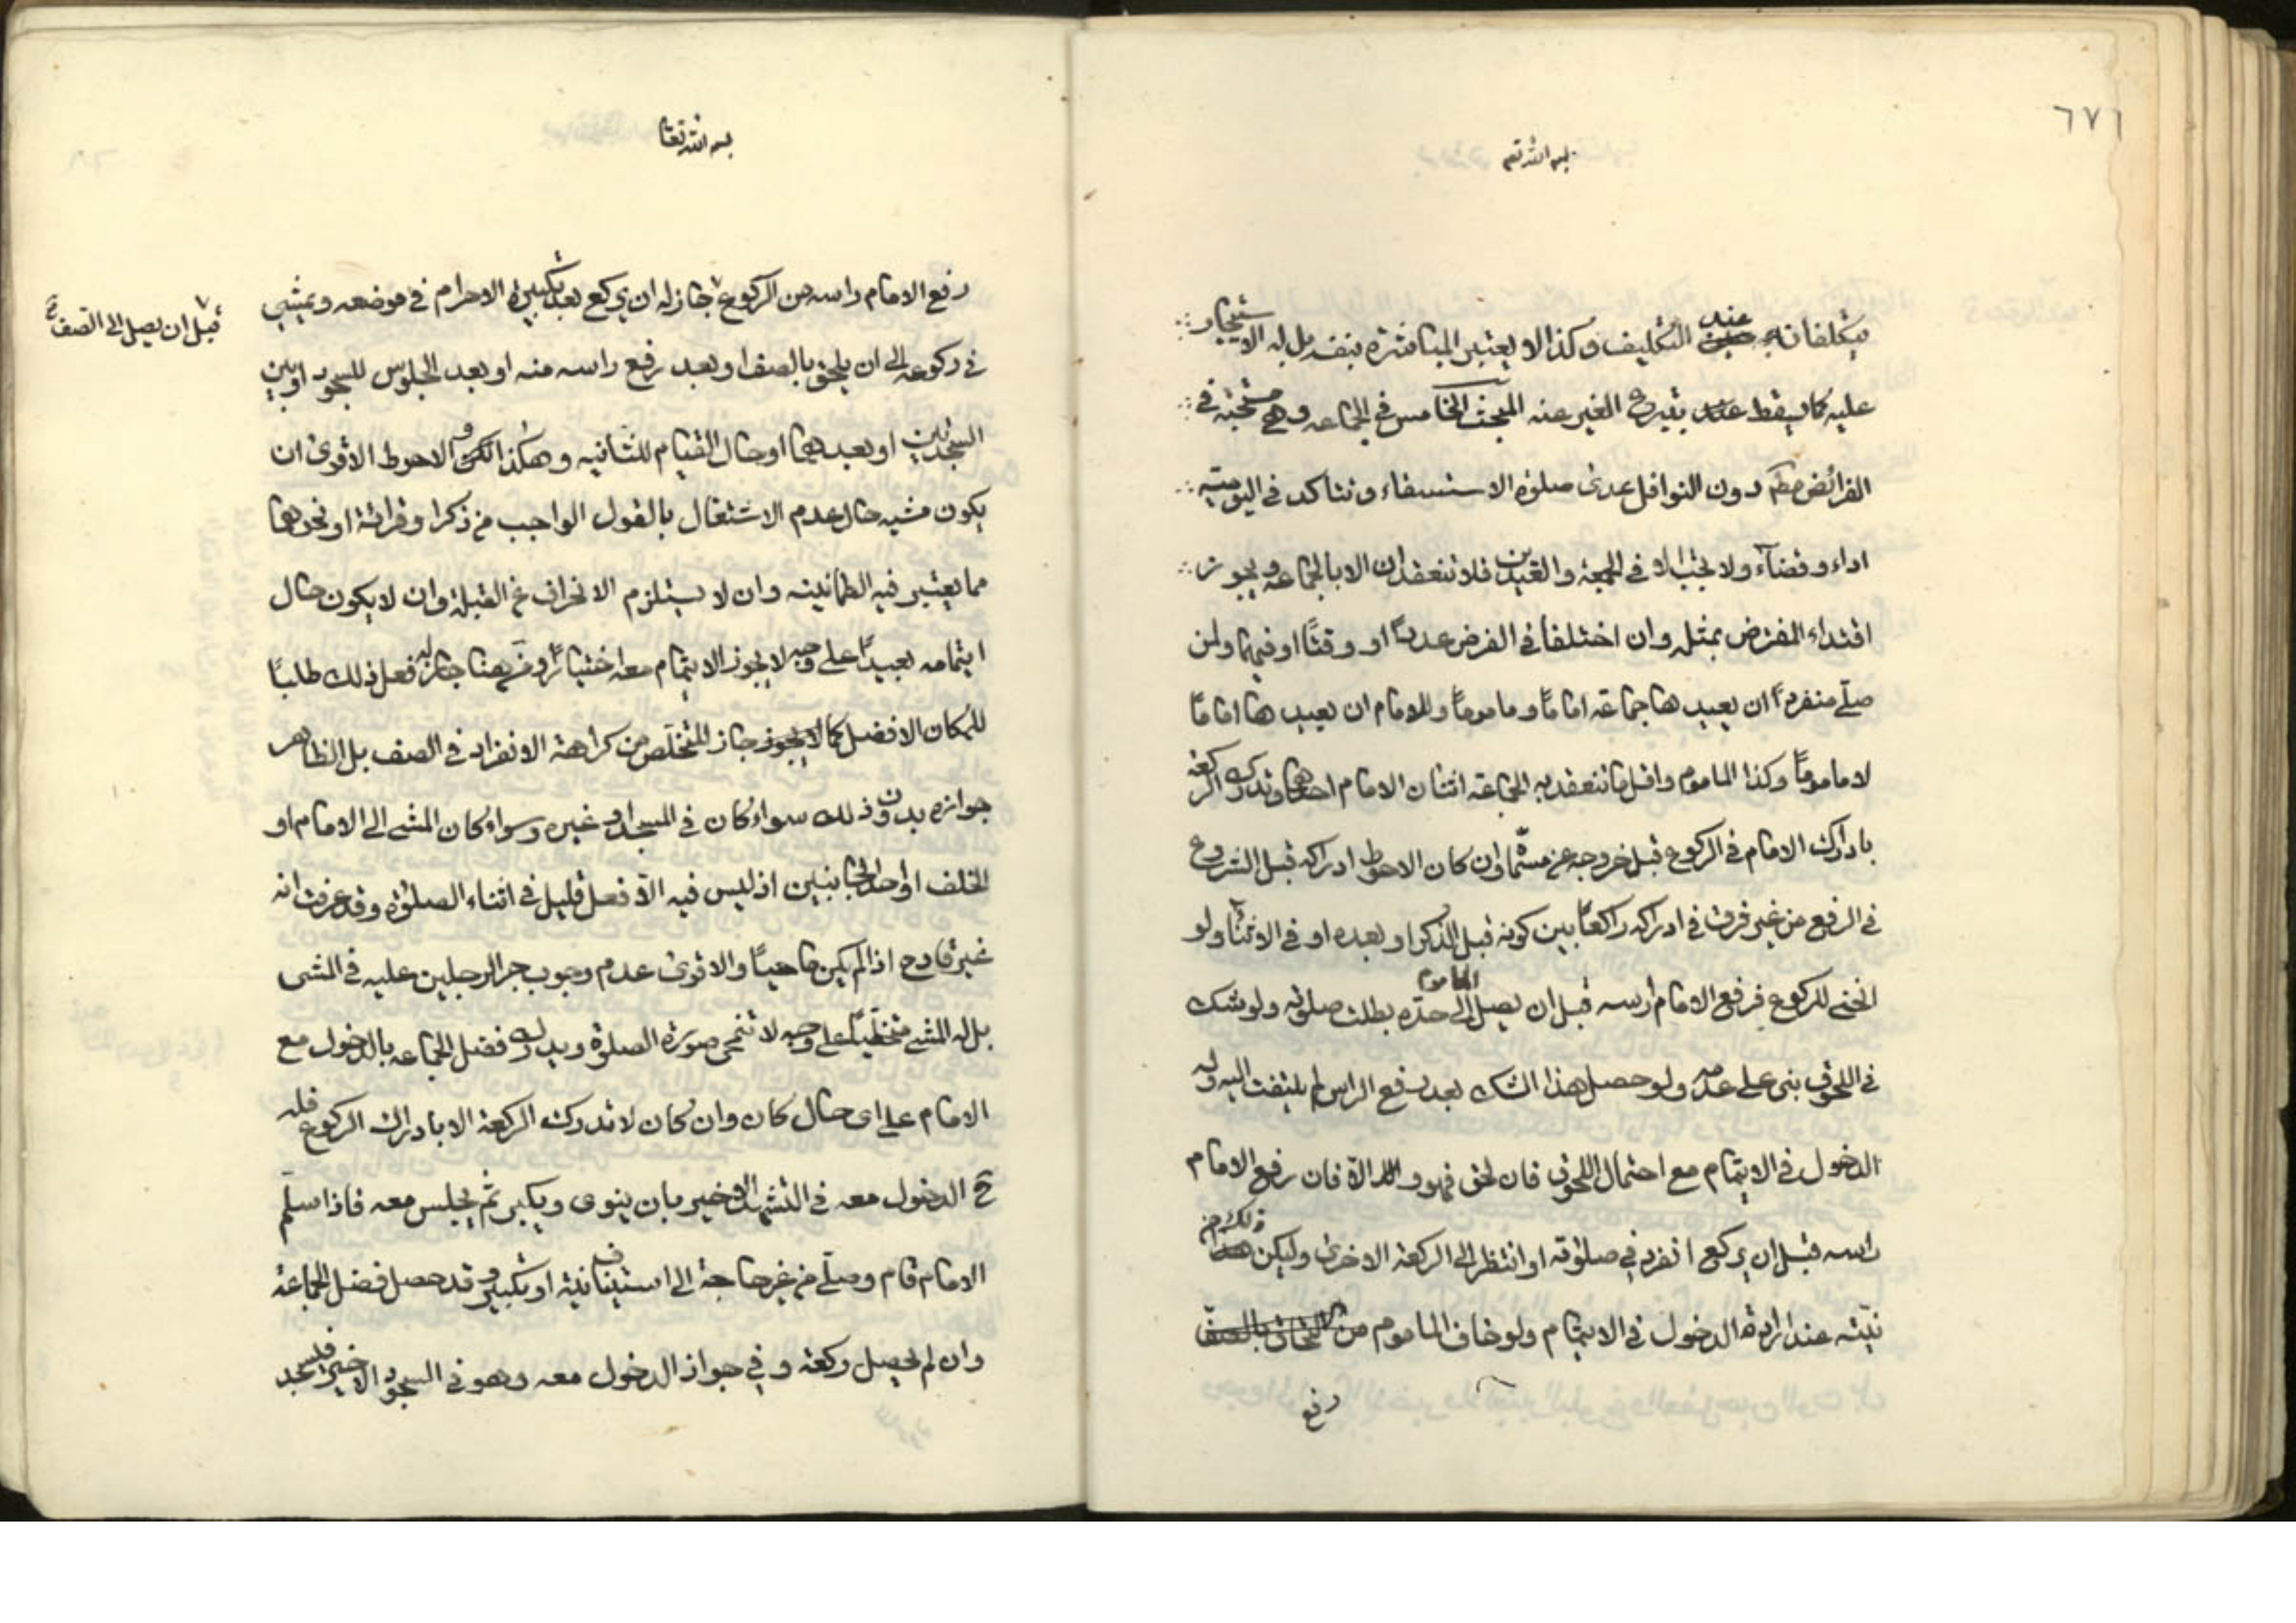 ٦٧٦
بسم الله تعم
متكلفا فانه عند التكليف وكذا لا يعتبر المباشرة بنفسه بل له الاستيجار
عليه كما يسقط عنه بتبرع الغير عنه المبحث الخامس في الجماعه وهي مستحبة في
الفرائض مطم دون النوافل عدى صلوة الاستسقاء وتتاكد في اليومية
اداء وقضآء ولا تجب الا في الجمعة والعيدين فلا تنعقدان الا بالجماعه ويجوز
اقتداء المفترض بمثله وان اختلفا في الفرض عددًا او وقتًا او فيهما ولمن
صلّى منفردًا ان يعيدها جماعة امامًا ومامومًا وللامام ان يعيدها امامًا
لا مامومًا وكذا الماموم واقل ما تنعقد به الجماعة اثنان الامام احدهما وتدرك الركعة
بادراك الامام في الركوع قبل خروجه عن مسمّاه وان كان الاحوط ادراكه قبل الشروع
في الرفع من غير فرق في ادراكه راكعًا بين كونه قبل الذكر او بعده او في الاثناء ولو
انحنى للركوع فرفع الامام راسه قبل ان يصل الماموم الى حدّه بطلت صلوته ولو شك
في اللحوق بنى على عدمه ولو حصل هذا الشك بعد رفع الراس لم يلتفت اليه وله
الدخول في الايتمام مع احتمال اللحوق فان لحق فهو والّا فان رفع الامام
راسه قبل ان يركع انفرد في صلوته او انتظر الى الركعة الاخرى وليكن ذلك من
نيّته عند ارادة الدخول في الايتمام ولو خاف الماموم من
رفع
بسم الله تعا
رفع الامام راسه من الركوع جاز له ان يركع بعد تكبيرة الاحرام في موضعه ويمشي
قبل ان يصل الى الصف
في ركوعه الى ان يلحق بالصف او بعد رفع راسه منه او بعد الجلوس للسجود او بين
السجدتين او بعدهما او حال القيام للثانيه وهكذا لكن الاحوط الاقوى ان
يكون مشيه حال عدم الاشتغال بالقول الواجب من ذكر او قرائة او نحوهما
مما يعتبر فيه الطمانينه وان لا يستلزم الانحراف عن القبلة وان لا يكون حال
ايتمامه بعيدًا على وجه لا يجوز الايتمام معه اختيارًا ومن هنا جاز له فعل ذلك طالبًا
للمكان الافضل كما يجوز جاز التخلّص من كراهة الانفراد في الصف بل الظاهر
جوازه بدون ذلك سواء كان في المسجد او غيره وسواء كان المشى الى الامام او
الخلف او احد الجانبين اذ ليس فيه الّا فعل قليل في اثناء الصلوة وقد عرفت انه
غير قادح اذا لم يكن ماحيًا والاقوى عدم وجوب جر الرجلين عليه في المشى
بل له المشى متخطّيًا على وجه لا تنمحى صورة الصلوة ويدرك فضل الجماعه بالدخول مع
الامام على اى حال كان وان كان لا تدرك الركعة الا بادراك الركوع فله
ح الدخول معه في التشهد الاخير بان ينوى ويكبر ثم يجلس معه فاذا سلّم
الامام قام وصلّى من غير حاجة الى استيناف نية او تكبير وقد حصل فضل الجماعة
وان لم يحصل ركعة وفي جواز الدخول معه وهو في السجود الاخير فيسجد